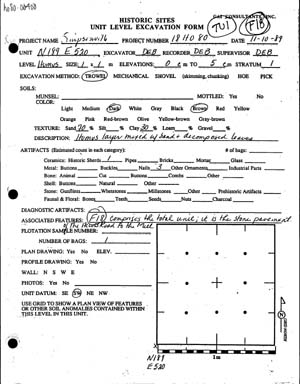 HISTORIC SITES
UNIT LEVEL EXCAVATION FORM
TU1
F18
PROJECT NAME Simpson 76 PROJECT NUMBER 18 HO 80 DATE 11-10-89
UNIT N189 E520 EXCAVATOR DEB RECORDER DEB SUPERVISOR DEB
LEVEL Humus SIZE 1 x 1 m ELEVATIONS 0 cm TO 5 cm STRATUM 1
EXCAVATION METHOD: TROWEL MECHANICAL SHOVEL (skimming, chunking) HOE PICK
SOILS
MUNSELL: MOTTLED: Yes No
COLOR:
Light Medium Dark Gray Black Brown Red Yellow
Orange Pink Red-brown Olive Yellow-brown Gray-brown Olive-gray
TEXTURE: Sand 20 % Silt % Clay 30 % Loam Gravel %
DESCRIPTION: Humus layer mixed w/ sand & decomposed leaves
ARTIFACTS (Estimated count in each category) # of bags:
Ceramics: Historic Sherds 1 Pipes Bricks Mortar Glass
Metal: Buttons Buckles Nails 3 Other Ornaments Industrial Parts
Bone: Animal Cut Buttons Combs Other
Shell: Buttons Natural Other
Stone: Gunflints Whetstones Millstones Other Prehistoric Artifacts
Faunal & Floral: Bones Teeth Seeds Nuts Charcoal
DIAGNOSTIC ARTIFACTS:
ASSOCIATED FEATURES: F18 comprises the total unit; it is the stone pavement
of the road to the Mill
FLOTATION SAMPLE NUMBER:
NUMBER OF BAGS: 1
PLAN DRAWING: Yes No ELEV.
PROFILE DRAWING: Yes No
WALL: N S W E
PHOTOS: Yes No
UNIT DATUM: SE SW NE NW
USE GRID TO SHOW A PLAN VIEW OF FEATURES
OR OTHER SOIL ANOMALIES CONTAINED WITHIN
THIS LEVEL IN THIS UNIT.
N189
E520
1 m